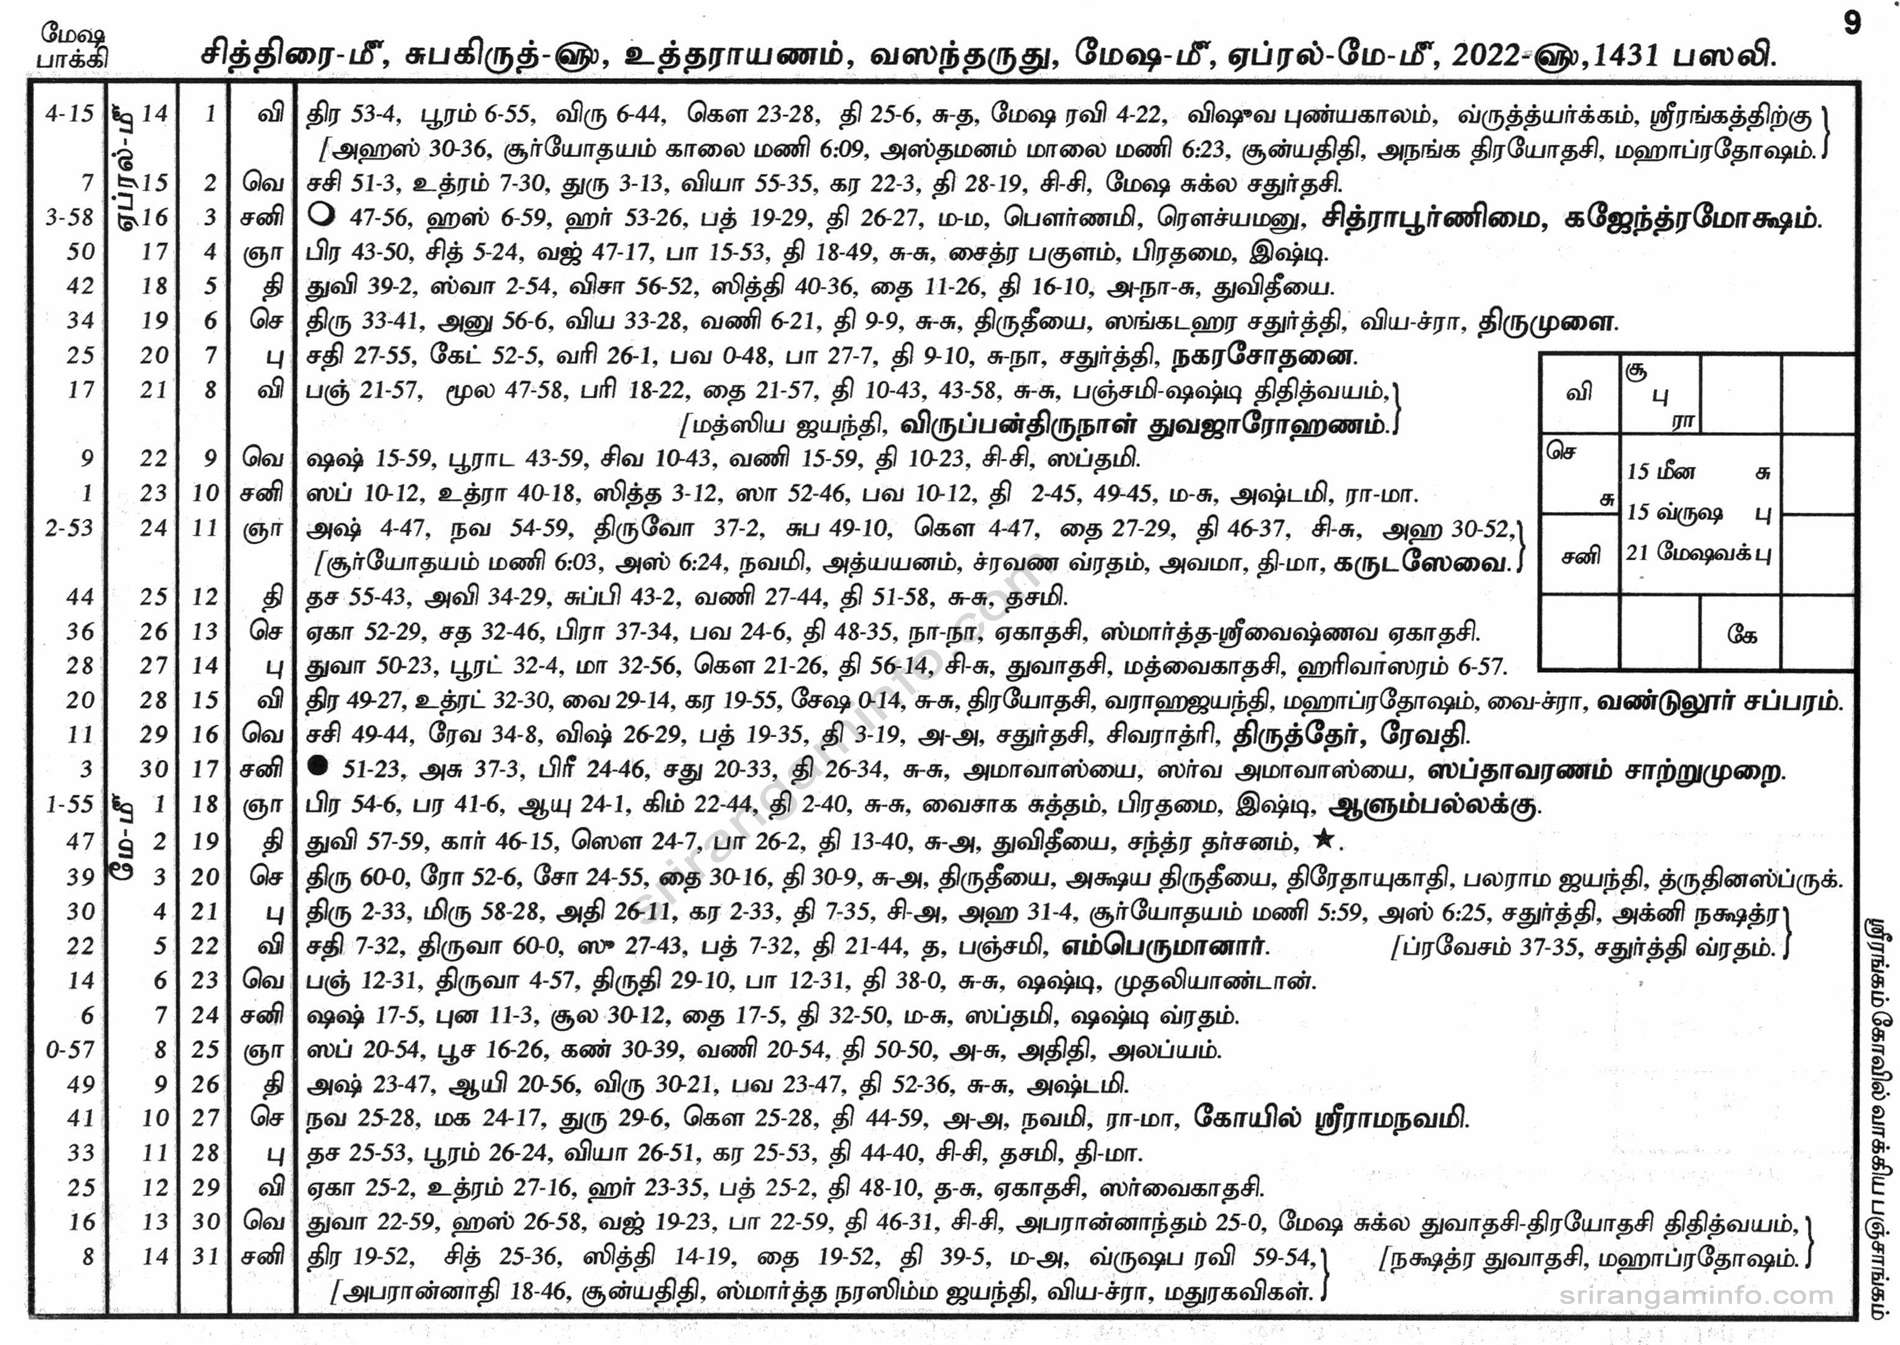 9
மேஷ
பாக்கி
சித்திரை-மீ, சுபகிருத்-ஹு, உத்தராயணம், வஸந்தருது, மேஷ-மீ, ஏப்ரல்-மே-மீ, 2022-ஹு,1431 பஸலி.
4-15 ஏப்ரல்-மீ 14 1 வி திர 53-4, பூரம் 6-55, விரு 6-44, கௌ 23-28, தி 25-6, சு-த, மேஷ ரவி 4-22, விஷுவ புண்யகாலம், வ்ருத்த்யர்க்கம், ஸ்ரீரங்கத்திற்கு}
[அஹஸ் 30-36, சூர்யோதயம் காலை மணி 6:09, அஸ்தமனம் மாலை மணி 6:23, சூன்யதிதி, அநங்க திரயோதசி, மஹாப்ரதோஷம்.}
7 15 2 வெ சசி 51-3, உத்ரம் 7-30, துரு 3-13, வியா 55-35, கர 22-3, தி 28-19, சி-சி, மேஷ சுக்ல சதுர்தசி.
3-58 16 3 சனி ○ 47-56, ஹஸ் 6-59, ஹர் 53-26, பத் 19-29, தி 26-27, ம-ம, பௌர்ணமி, ரௌச்யமனு, சித்ராபூர்ணிமை, கஜேந்த்ரமோக்ஷம்.
50 17 4 ஞா பிர 43-50, சித் 5-24, வஜ் 47-17, பா 15-53, தி 18-49, சு-சு, சைத்ர பகுளம், பிரதமை, இஷ்டி.
42 18 5 தி துவி 39-2, ஸ்வா 2-54, விசா 56-52, ஸித்தி 40-36, தை 11-26, தி 16-10, அ-நா-சு, துவிதீயை.
34 19 6 செ திரு 33-41, அனு 56-6, விய 33-28, வணி 6-21, தி 9-9, சு-சு, திருதீயை, ஸங்கடஹர சதுர்த்தி, விய-ச்ரா, திருமுளை.
25 20 7 பு சதி 27-55, கேட் 52-5, வரி 26-1, பவ 0-48, பா 27-7, தி 9-10, சு-நா, சதுர்த்தி, நகரசோதனை.
17 21 8 வி பஞ் 21-57, மூல 47-58, பரி 18-22, தை 21-57, தி 10-43, 43-58, சு-சு, பஞ்சமி-ஷஷ்டி திதித்வயம்,}
[மத்ஸிய ஜயந்தி, விருப்பன்திருநாள் துவஜாரோஹணம்.}
9 22 9 வெ ஷஷ் 15-59, பூராட 43-59, சிவ 10-43, வணி 15-59, தி 10-23, சி-சி, ஸப்தமி.
1 23 10 சனி ஸப் 10-12, உத்ரா 40-18, ஸித்த 3-12, ஸா 52-46, பவ 10-12, தி 2-45, 49-45, ம-சு, அஷ்டமி, ரா-மா.
2-53 24 11 ஞா அஷ் 4-47, நவ 54-59, திருவோ 37-2, சுப 49-10, கௌ 4-47, தை 27-29, தி 46-37, சி-சு, அஹ 30-52,}
[சூர்யோதயம் மணி 6:03, அஸ் 6:24, நவமி, அத்யயனம், ச்ரவண வ்ரதம், அவமா, தி-மா, கருடஸேவை.}
44 25 12 தி தச 55-43, அவி 34-29, சுப்பி 43-2, வணி 27-44, தி 51-58, சு-சு, தசமி.
36 26 13 செ ஏகா 52-29, சத 32-46, பிரா 37-34, பவ 24-6, தி 48-35, நா-நா, ஏகாதசி, ஸ்மார்த்த-ஸ்ரீவைஷ்ணவ ஏகாதசி.
28 27 14 பு துவா 50-23, பூரட் 32-4, மா 32-56, கௌ 21-26, தி 56-14, சி-சு, துவாதசி, மத்வைகாதசி, ஹரிவாஸரம் 6-57.
வி
சூ
பு
ரா
செ
சு
சனி
15 மீன சு
15 வ்ருஷ பு
21 மேஷவக் பு
கே
20 28 15 வி திர 49-27, உத்ரட் 32-30, வை 29-14, கர 19-55, சேஷ 0-14, சு-சு, திரயோதசி, வராஹஜயந்தி, மஹாப்ரதோஷம், வை-ச்ரா, வண்டுலூர் சப்பரம்.
11 29 16 வெ சசி 49-44, ரேவ 34-8, விஷ் 26-29, பத் 19-35, தி 3-19, அ-அ, சதுர்தசி, சிவராத்ரி, திருத்தேர், ரேவதி.
3 30 17 சனி ● 51-23, அசு 37-3, பிரீ 24-46, சது 20-33, தி 26-34, சு-சு, அமாவாஸ்யை, ஸர்வ அமாவாஸ்யை, ஸப்தாவரணம் சாற்றுமுறை.
1-55 மே-மீ 1 18 ஞா பிர 54-6, பர 41-6, ஆயு 24-1, கிம் 22-44, தி 2-40, சு-சு, வைசாக சுத்தம், பிரதமை, இஷ்டி, ஆளும்பல்லக்கு.
47 2 19 தி துவி 57-59, கார் 46-15, ஸௌ 24-7, பா 26-2, தி 13-40, சு-அ, துவிதீயை, சந்த்ர தர்சனம், ★.
39 3 20 செ திரு 60-0, ரோ 52-6, சோ 24-55, தை 30-16, தி 30-9, சு-அ, திருதீயை, அக்ஷய திருதீயை, திரேதாயுகாதி, பலராம ஜயந்தி, த்ருதினஸ்ப்ருக்.
30 4 21 பு திரு 2-33, மிரு 58-28, அதி 26-11, கர 2-33, தி 7-35, சி-அ, அஹ 31-4, சூர்யோதயம் மணி 5:59, அஸ் 6:25, சதுர்த்தி, அக்னி நக்ஷத்ர}
22 5 22 வி சதி 7-32, திருவா 60-0, ஸு 27-43, பத் 7-32, தி 21-44, த, பஞ்சமி, எம்பெருமானார். [ப்ரவேசம் 37-35, சதுர்த்தி வ்ரதம்.}
14 6 23 வெ பஞ் 12-31, திருவா 4-57, திருதி 29-10, பா 12-31, தி 38-0, சு-சு, ஷஷ்டி, முதலியாண்டான்.
6 7 24 சனி ஷஷ் 17-5, புன 11-3, சூல 30-12, தை 17-5, தி 32-50, ம-சு, ஸப்தமி, ஷஷ்டி வ்ரதம்.
0-57 8 25 ஞா ஸப் 20-54, பூச 16-26, கண் 30-39, வணி 20-54, தி 50-50, அ-சு, அதிதி, அலப்யம்.
49 9 26 தி அஷ் 23-47, ஆயி 20-56, விரு 30-21, பவ 23-47, தி 52-36, சு-சு, அஷ்டமி.
41 10 27 செ நவ 25-28, மக 24-17, துரு 29-6, கௌ 25-28, தி 44-59, அ-அ, நவமி, ரா-மா, கோயில் ஸ்ரீராமநவமி.
33 11 28 பு தச 25-53, பூரம் 26-24, வியா 26-51, கர 25-53, தி 44-40, சி-சி, தசமி, தி-மா.
25 12 29 வி ஏகா 25-2, உத்ரம் 27-16, ஹர் 23-35, பத் 25-2, தி 48-10, த-சு, ஏகாதசி, ஸர்வைகாதசி.
16 13 30 வெ துவா 22-59, ஹஸ் 26-58, வஜ் 19-23, பா 22-59, தி 46-31, சி-சி, அபரான்னாந்தம் 25-0, மேஷ சுக்ல துவாதசி-திரயோதசி திதித்வயம்,}
8 14 31 சனி திர 19-52, சித் 25-36, ஸித்தி 14-19, தை 19-52, தி 39-5, ம-அ, வ்ருஷப ரவி 59-54,} [நக்ஷத்ர துவாதசி, மஹாப்ரதோஷம்.}
[அபரான்னாதி 18-46, சூன்யதிதி, ஸ்மார்த்த நரஸிம்ம ஜயந்தி, விய-ச்ரா, மதுரகவிகள்.}
ஸ்ரீரங்கம் கோவில் வாக்கிய பஞ்சாங்கம்
sriranga­minfo.com
srirangaminfo.com